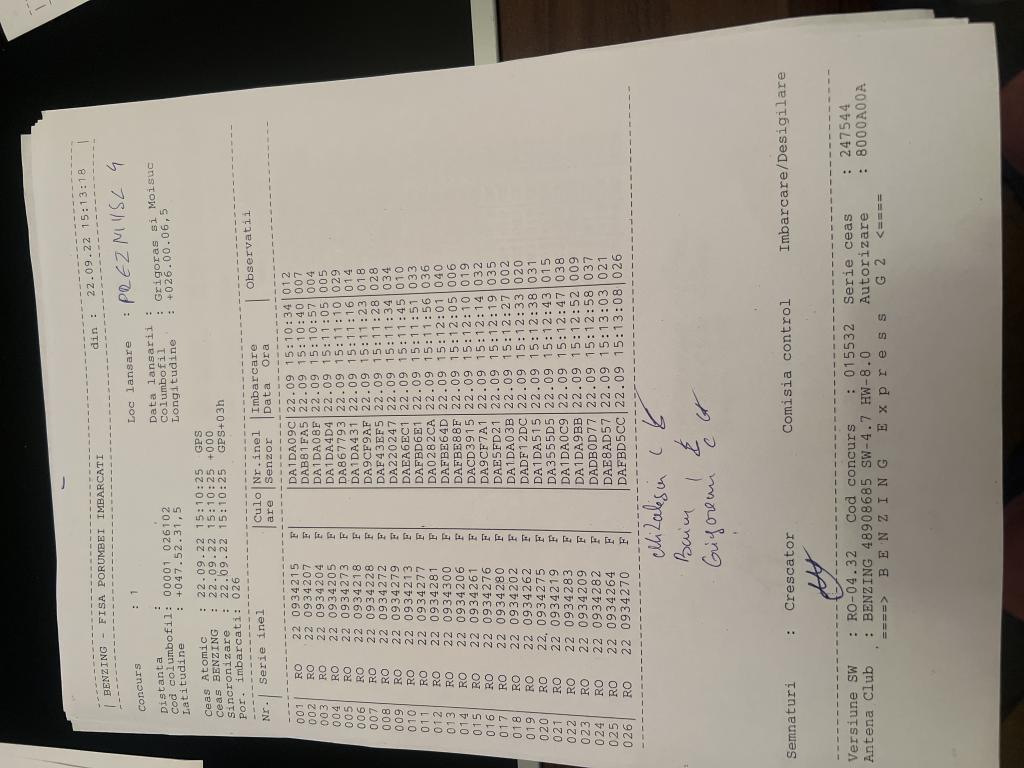 | BENZING - FISA PORUMBEI IMBARCATI din : 22.09.22 15:13:18 |
Concurs : 1 Loc lansare : PREZMIISL 4
Distanta : Data lansarii :
Cod columbofil: 00001 026102 Columbofil : Grigoras si Moisuc
Latitudine : +047.52.31,5 Longitudine : +026.00.06,5
Ceas Atomic : 22.09.22 15:10:25 GPS
Ceas BENZING : 22.09.22 15:10:25 +000
Sincronizare : 22.09.22 15:10:25 GPS+03h
Por. imbarcati: 026
Nr. | Serie inel |Culo|Nr.inel |Imbarcare | Observatii
|are |Senzor |Data Ora |
001 | RO 22 0934215 F |DA1DA09C|22.09 15:10:34|012
002 | RO 22 0934207 F |DAB81FA5|22.09 15:10:40|007
003 | RO 22 0934204 F |DA1DA08F|22.09 15:10:57|004
004 | RO 22 0934205 F |DA1DA4D4|22.09 15:11:05|005
005 | RO 22 0934273 F |DA867793|22.09 15:11:10|029
006 | RO 22 0934218 F |DA1DA431|22.09 15:11:16|014
007 | RO 22 0934228 F |DA9CF9AF|22.09 15:11:23|018
008 | RO 22 0934272 F |DAF43EF5|22.09 15:11:28|028
009 | RO 22 0934279 F |DA220247|22.09 15:11:34|034
010 | RO 22 0934213 F |DAEA6EC1|22.09 15:11:45|010
011 | RO 22 0934277 F |DAFBD6E1|22.09 15:11:51|033
012 | RO 22 0934281 F |DA02B2CA|22.09 15:11:56|036
013 | RO 22 0934300 F |DAFBE64D|22.09 15:12:01|040
014 | RO 22 0934206 F |DAFBE88F|22.09 15:12:05|006
015 | RO 22 0934261 F |DACD3915|22.09 15:12:10|019
016 | RO 22 0934276 F |DA9CF7A1|22.09 15:12:14|032
017 | RO 22 0934280 F |DAE5FD21|22.09 15:12:19|035
018 | RO 22 0934202 F |DA1DA03B|22.09 15:12:27|002
019 | RO 22 0934262 F |DADF12DC|22.09 15:12:33|020
020 | RO 22 0934275 F |DA1DA515|22.09 15:12:38|031
021 | RO 22 0934219 F |DA3555D5|22.09 15:12:43|015
022 | RO 22 0934283 F |DA1DA0C9|22.09 15:12:47|038
023 | RO 22 0934209 F |DA1DA9BB|22.09 15:12:52|009
024 | RO 22 0934282 F |DADB0D77|22.09 15:12:58|037
025 | RO 22 0934264 F |DAE8AD57|22.09 15:13:03|021
026 | RO 22 0934270 F |DAFBD5CC|22.09 15:13:08|026
Semnaturi : Crescator Comisia control Imbarcare/Desigilare
Versiune SW : RO-04.32 Cod concurs : 015532 Serie ceas : 247544
Antena Club : BENZING 48908685 SW-4.7 HW-8.0 Autorizare : 8000A00A
====> B E N Z I N G E x p r e s s G 2 <====